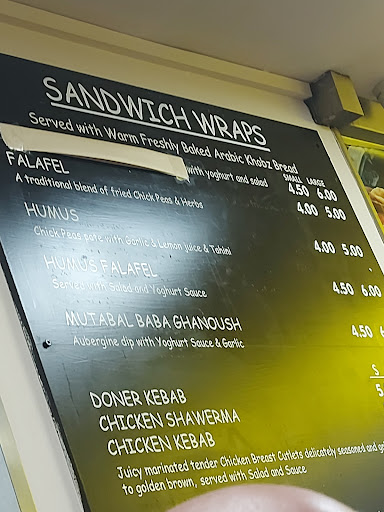 SANDWICH WRAPS
Served with Warm Freshly Baked Arabic Khobz Bread
SMALL LARGE
with yoghurt and salad 4.50 6.00
FALAFEL 4.00 5.00
A traditional blend of fried Chick Peas & Herbs
HUMUS 4.00 5.00
Chick Peas pate with Garlic & Lemon juice & Tahini
HUMUS FALAFEL 4.50 6.00
Served with Salad and Yoghurt Sauce
MUTABAL BABA GHANOUSH 4.50 6
Aubergine dip with Yoghurt Sauce & Garlic
S
DONER KEBAB 5
CHICKEN SHAWERMA
CHICKEN KEBAB
Juicy marinated tender Chicken Breast Cutlets delicately seasoned and
to golden brown, served with Salad and Sauce